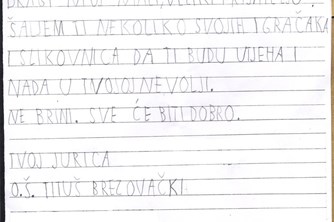 ŠALJEM TI NEKOLIKO SVOJIH IGRAČAKA
I SLIKOVNICA DA TI BUDU UTJEHA I
NADA U TVOJOJ NEVOLJI.
NE BRINI. SVE ĆE BITI DOBRO.
TVOJ JURICA
O.Š. TITUŠ BREZOVAČKI